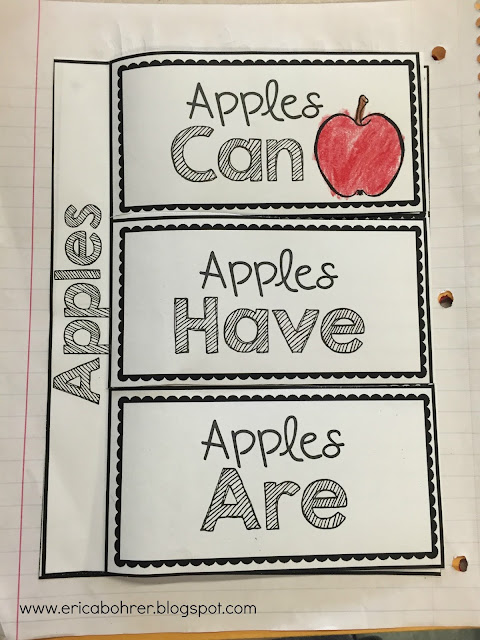 Apples
Apples
Can
Apples
Have
Apples
Are
www.ericabohrer.blogspot.com